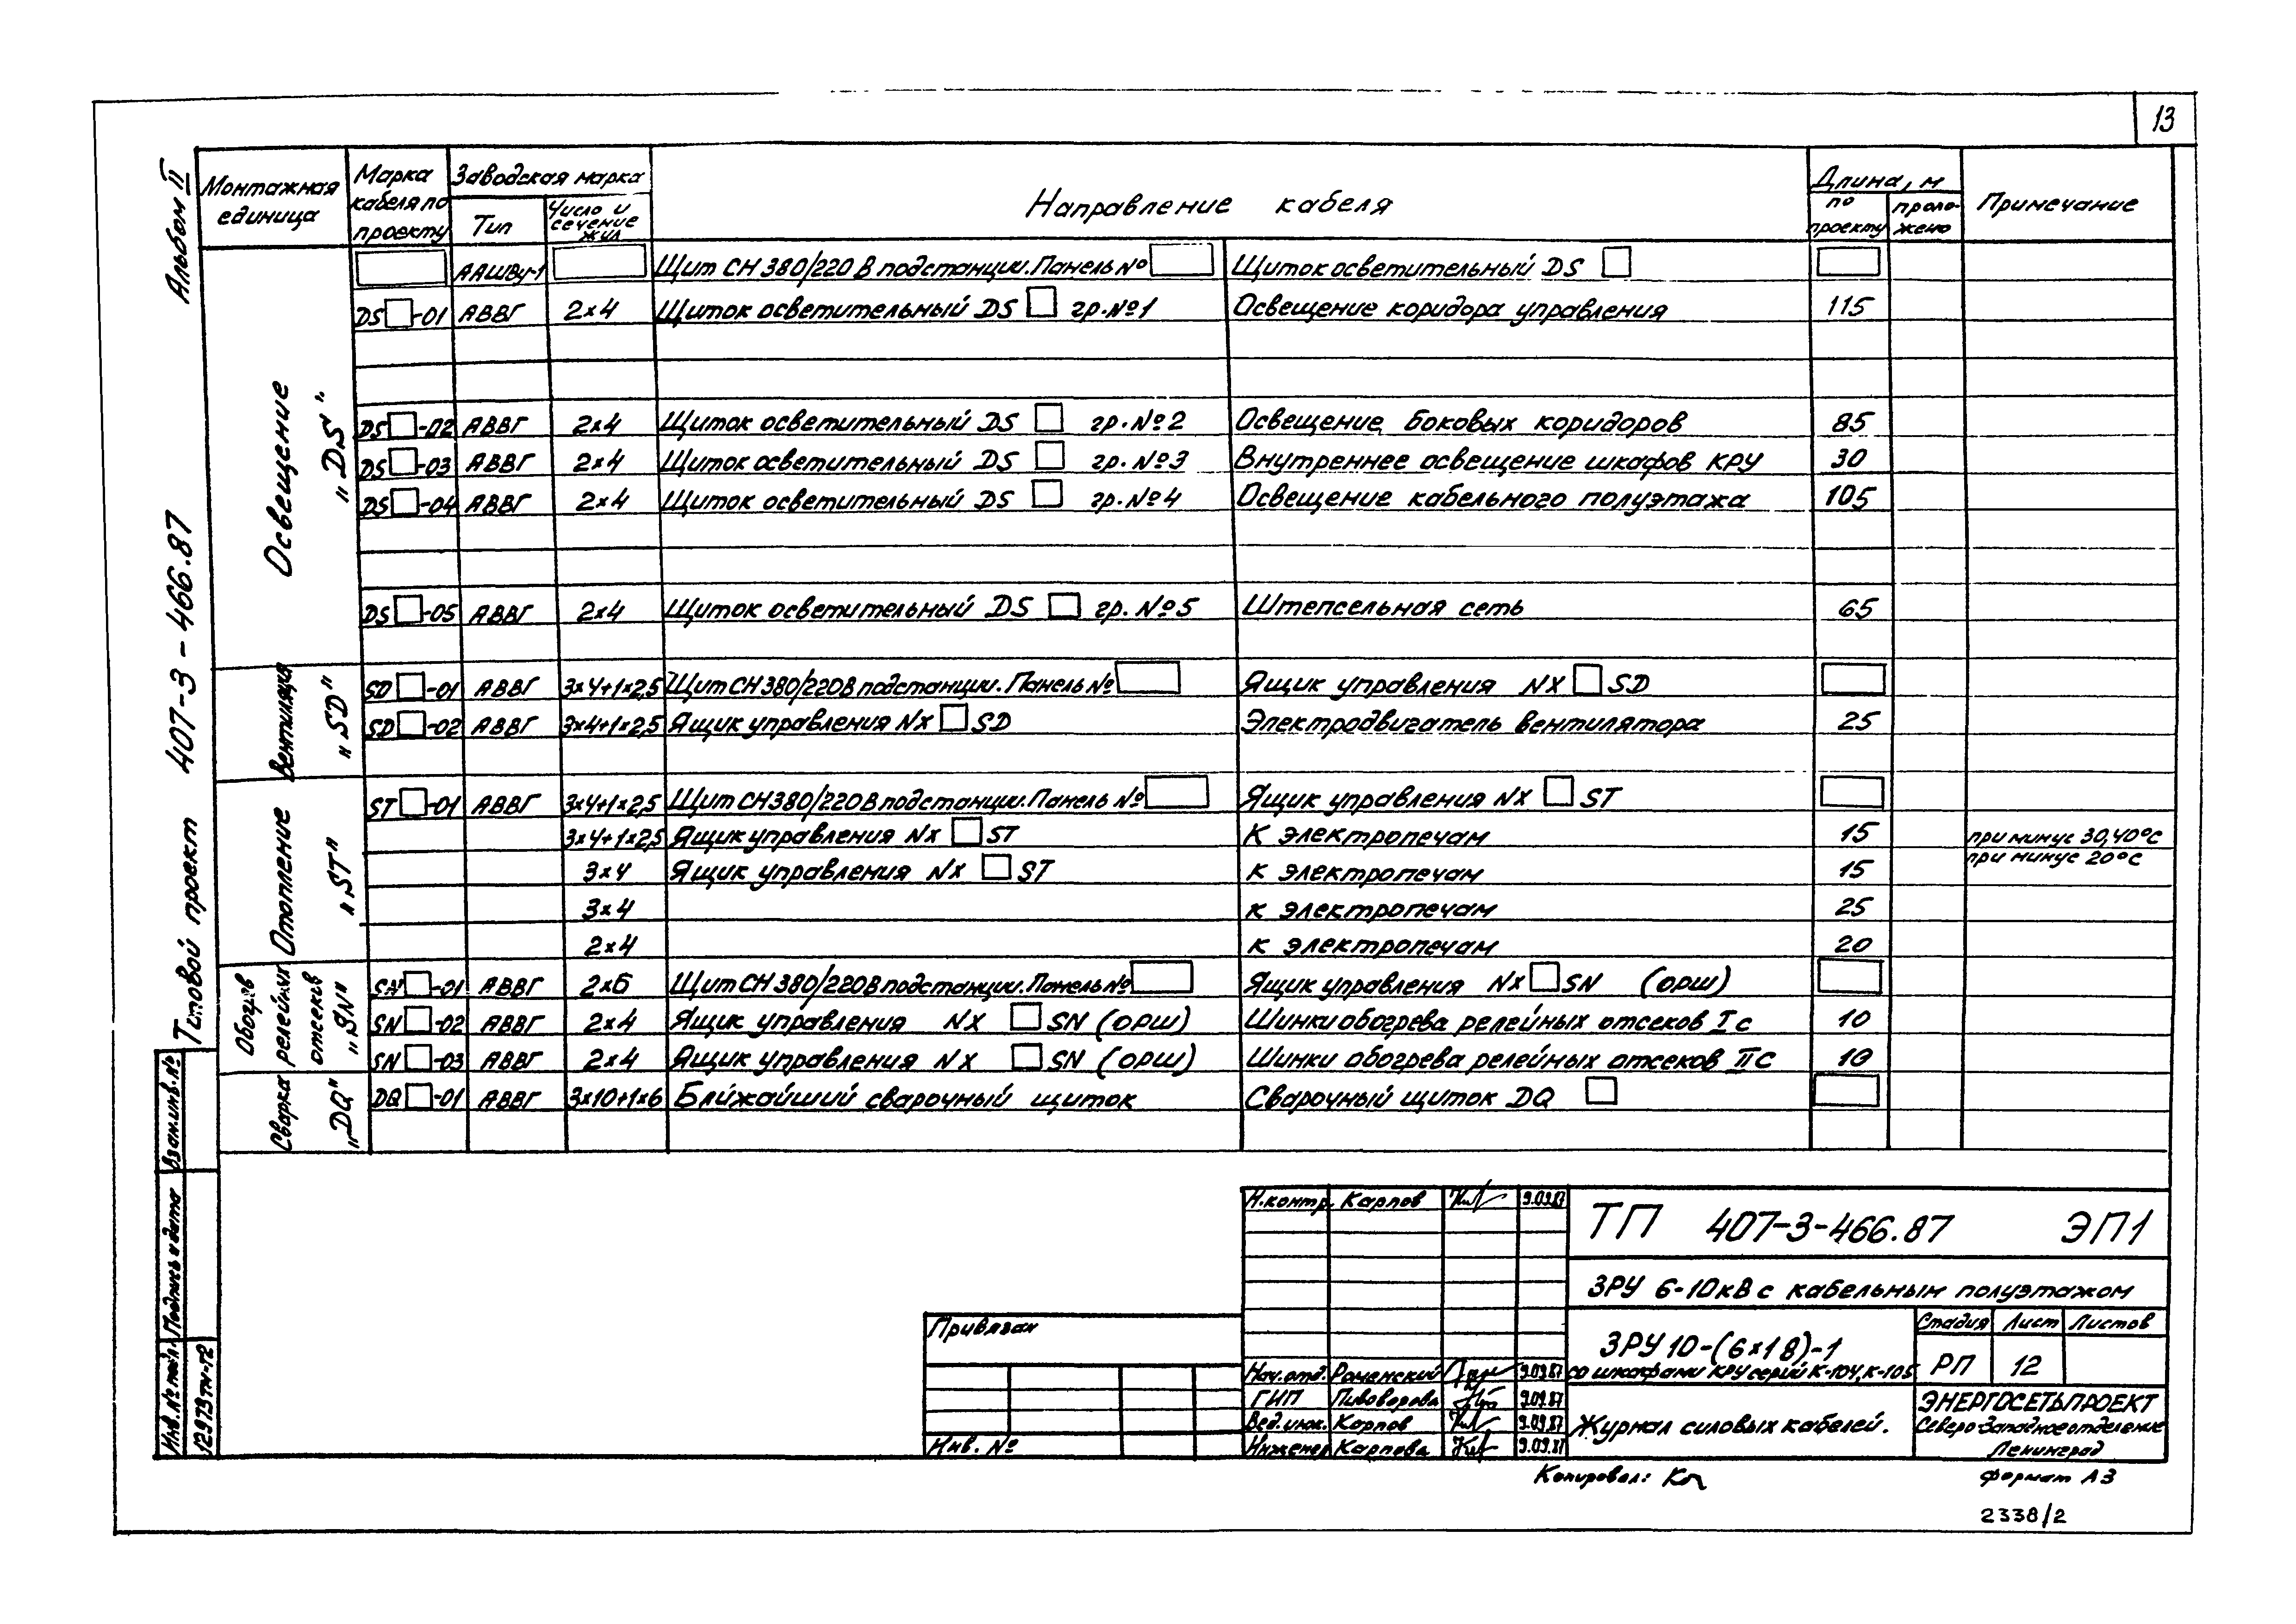 13
Альбом II
Типовой проект 407-3-466.87
Монтажная единица | Марка кабеля по проекту | Заводская марка | Направление кабеля | Длина, м | Примечание
Тип | Число и сечение жил | по проекту | проложено
Освещение „DS"
ААШВу-1 | Щит СН 380/220 В подстанции. Панель № | Щиток осветительный DS
DS -01 | АВВГ | 2×4 | Щиток осветительный DS гр.№1 | Освещение коридора управления | 115
DS -02 | АВВГ | 2×4 | Щиток осветительный DS гр.№2 | Освещение боковых коридоров | 85
DS -03 | АВВГ | 2×4 | Щиток осветительный DS гр.№3 | Внутреннее освещение шкафов КРУ | 30
DS -04 | АВВГ | 2×4 | Щиток осветительный DS гр.№4 | Освещение кабельного полуэтажа | 105
DS -05 | АВВГ | 2×4 | Щиток осветительный DS гр.№5 | Штепсельная сеть | 65
Вентиляция „SD"
SD -01 | АВВГ | 3×4+1×2,5 | Щит СН 380/220В подстанции. Панель № | Ящик управления NX SD
SD -02 | АВВГ | 3×4+1×2,5 | Ящик управления NX SD | Электродвигатель вентилятора | 25
Отопление „ST"
ST -01 | АВВГ | 3×4+1×2,5 | Щит СН 380/220В подстанции. Панель № | Ящик управления NX ST
3×4+1×2,5 | Ящик управления NX ST | К электропечам | 15 | при минус 30,40°С
3×4 | Ящик управления NX ST | к электропечам | 15 | при минус 20°С
3×4 | к электропечам | 25
2×4 | к электропечам | 20
Обогрев релейных отсеков „SN"
SN -01 | АВВГ | 2×6 | Щит СН 380/220В подстанции. Панель № | Ящик управления NX SN (ОРШ)
SN -02 | АВВГ | 2×4 | Ящик управления NX SN (ОРШ) | Шинки обогрева релейных отсеков I с | 10
SN -03 | АВВГ | 2×4 | Ящик управления NX SN (ОРШ) | Шинки обогрева релейных отсеков II С | 10
Сварка „DQ"
DQ -01 | АВВГ | 3×10+1×6 | Ближайший сварочный щиток | Сварочный щиток DQ
Взам.инв.№
Подпись и дата
Инв.№ подл.
12973тм-т2
Привязан
Инв. №
Н.контр. Карпов 9.09.87
Нач.отд. Роменский 9.09.87
ГИП Пивоварова 9.09.87
Вед.инж. Карпов 9.09.87
Инженер Карпова 9.09.87
ТП 407-3-466.87 ЭП1
ЗРУ 6-10кВ с кабельным полуэтажом
ЗРУ 10-(6×18)-1
со шкафами КРУ серий К-104, К-105
Стадия | Лист | Листов
РП | 12
Журнал силовых кабелей.
ЭНЕРГОСЕТЬПРОЕКТ
Северо-Западное отделение
Ленинград
Копировал:
формат А3
2338/2